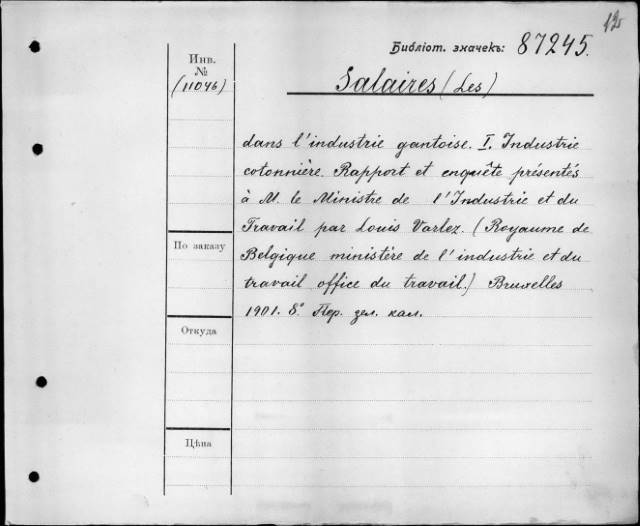 12
Библіот. значекъ: 87245.
Инв.
№
(11046)
Salaires (Les)
dans l'industrie gantoise. I. Industrie
cotonnière. Rapport et enquête présentés
à M. le Ministre de l'Industrie et du
Travail par Louis Varlez. (Royaume de
Belgique ministère de l'industrie et du
travail office du travail.) Bruxelles
1901. 8° Пер. зел. кал.
По заказу
Откуда
Цѣна